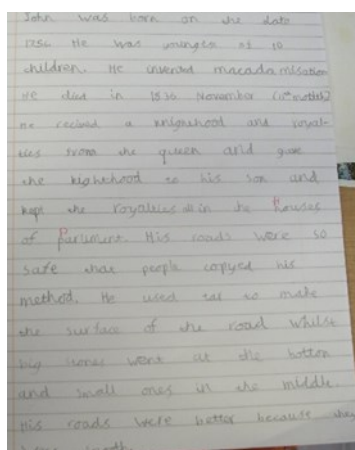 John was born on the date
1756. He was youngest of 10
children. He invented macadamisation
He died in 1836 November (11th month)
He recived a knighthood and royal-
ties from the queen and gave
the kighthood to his son and
kept the royalties in the houses
of parliment. His roads were so
safe that people copyed his
method. He used tar to make
the surface of the road whilst
big stones went at the bottom
and small ones in the middle.
His roads were better because they